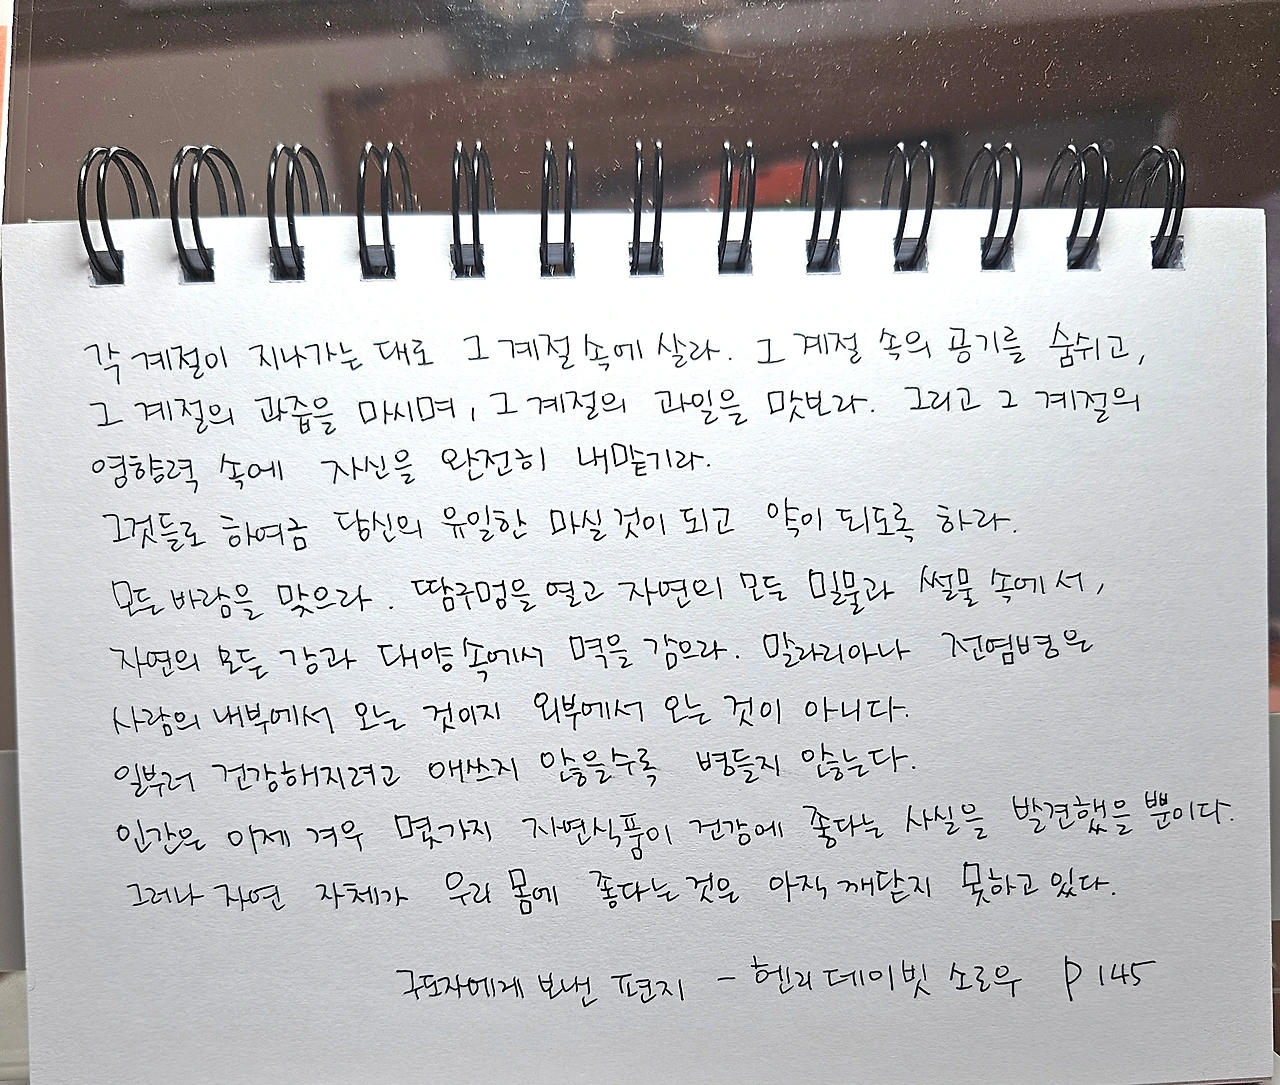 각 계절이 지나가는 대로 그 계절 속에 살라. 그 계절 속의 공기를 숨쉬고,
그 계절의 과즙을 마시며, 그 계절의 과일을 맛보라. 그리고 그 계절의
영향력 속에 자신을 완전히 내맡기라.
그것들로 하여금 당신의 유일한 마실 것이 되고 약이 되도록 하라.
모든 바람을 맞으라. 땀구멍을 열고 자연의 모든 밀물과 썰물 속에서,
자연의 모든 강과 대양 속에서 멱을 감으라. 말라리아나 전염병은
사람의 내부에서 오는 것이지 외부에서 오는 것이 아니다.
일부러 건강해지려고 애쓰지 않을수록 병들지 않는다.
인간은 이제 겨우 몇가지 자연식품이 건강에 좋다는 사실을 발견했을 뿐이다.
그러나 자연 자체가 우리 몸에 좋다는 것은 아직 깨닫지 못하고 있다.
구도자에게 보낸 편지 - 헨리 데이빗 소로우 P 145